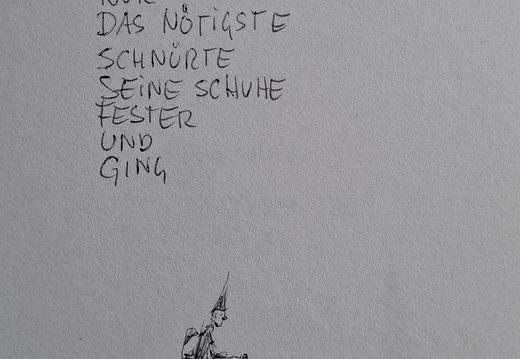 NUR
DAS NÖTIGSTE
SCHNÜRTE
SEINE SCHUHE
FESTER
UND
GING